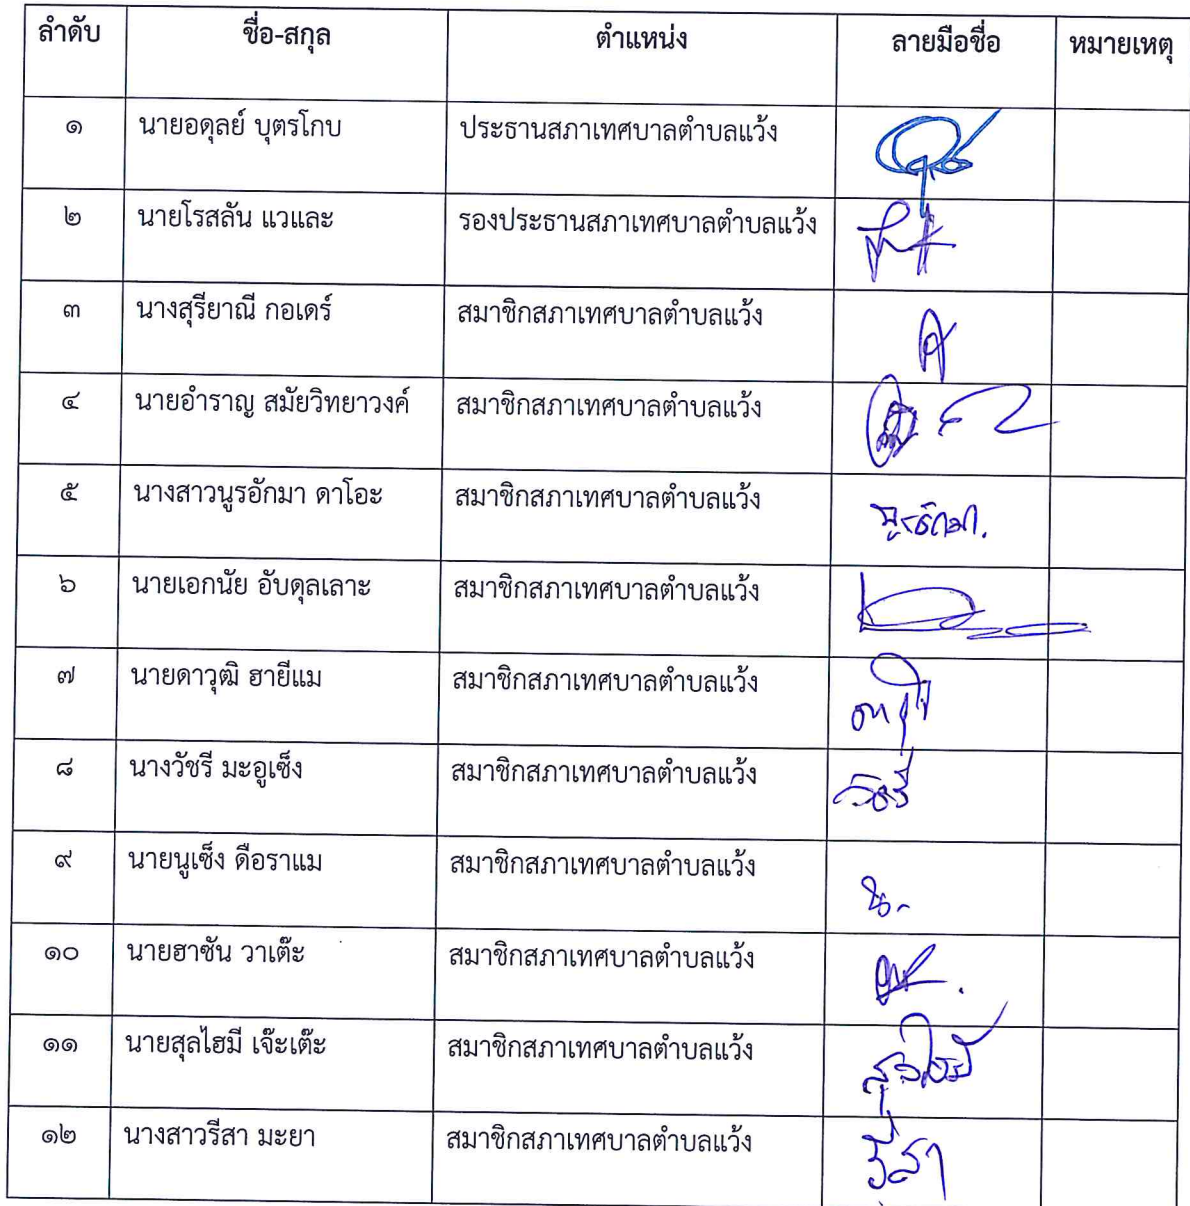 ลำดับ ชื่อ-สกุล ตำแหน่ง ลายมือชื่อ หมายเหตุ
๑ นายอดุลย์ บุตรโกบ ประธานสภาเทศบาลตำบลแว้ง
๒ นายโรสลัน แวและ รองประธานสภาเทศบาลตำบลแว้ง
๓ นางสุรียาณี กอเดร์ สมาชิกสภาเทศบาลตำบลแว้ง
๔ นายอำราญ สมัยวิทยาวงค์ สมาชิกสภาเทศบาลตำบลแว้ง
๕ นางสาวนูรอักมา ดาโอะ สมาชิกสภาเทศบาลตำบลแว้ง นูรอักมา.
๖ นายเอกนัย อับดุลเลาะ สมาชิกสภาเทศบาลตำบลแว้ง
๗ นายดาวุฒิ ฮายีแม สมาชิกสภาเทศบาลตำบลแว้ง
๘ นางวัชรี มะอูเซ็ง สมาชิกสภาเทศบาลตำบลแว้ง วัชรี
๙ นายนูเซ็ง ดือราแม สมาชิกสภาเทศบาลตำบลแว้ง
๑๐ นายฮาซัน วาเต๊ะ สมาชิกสภาเทศบาลตำบลแว้ง
๑๑ นายสุลไฮมี เจ๊ะเต๊ะ สมาชิกสภาเทศบาลตำบลแว้ง สุลไฮมี
๑๒ นางสาวรีสา มะยา สมาชิกสภาเทศบาลตำบลแว้ง รีสา